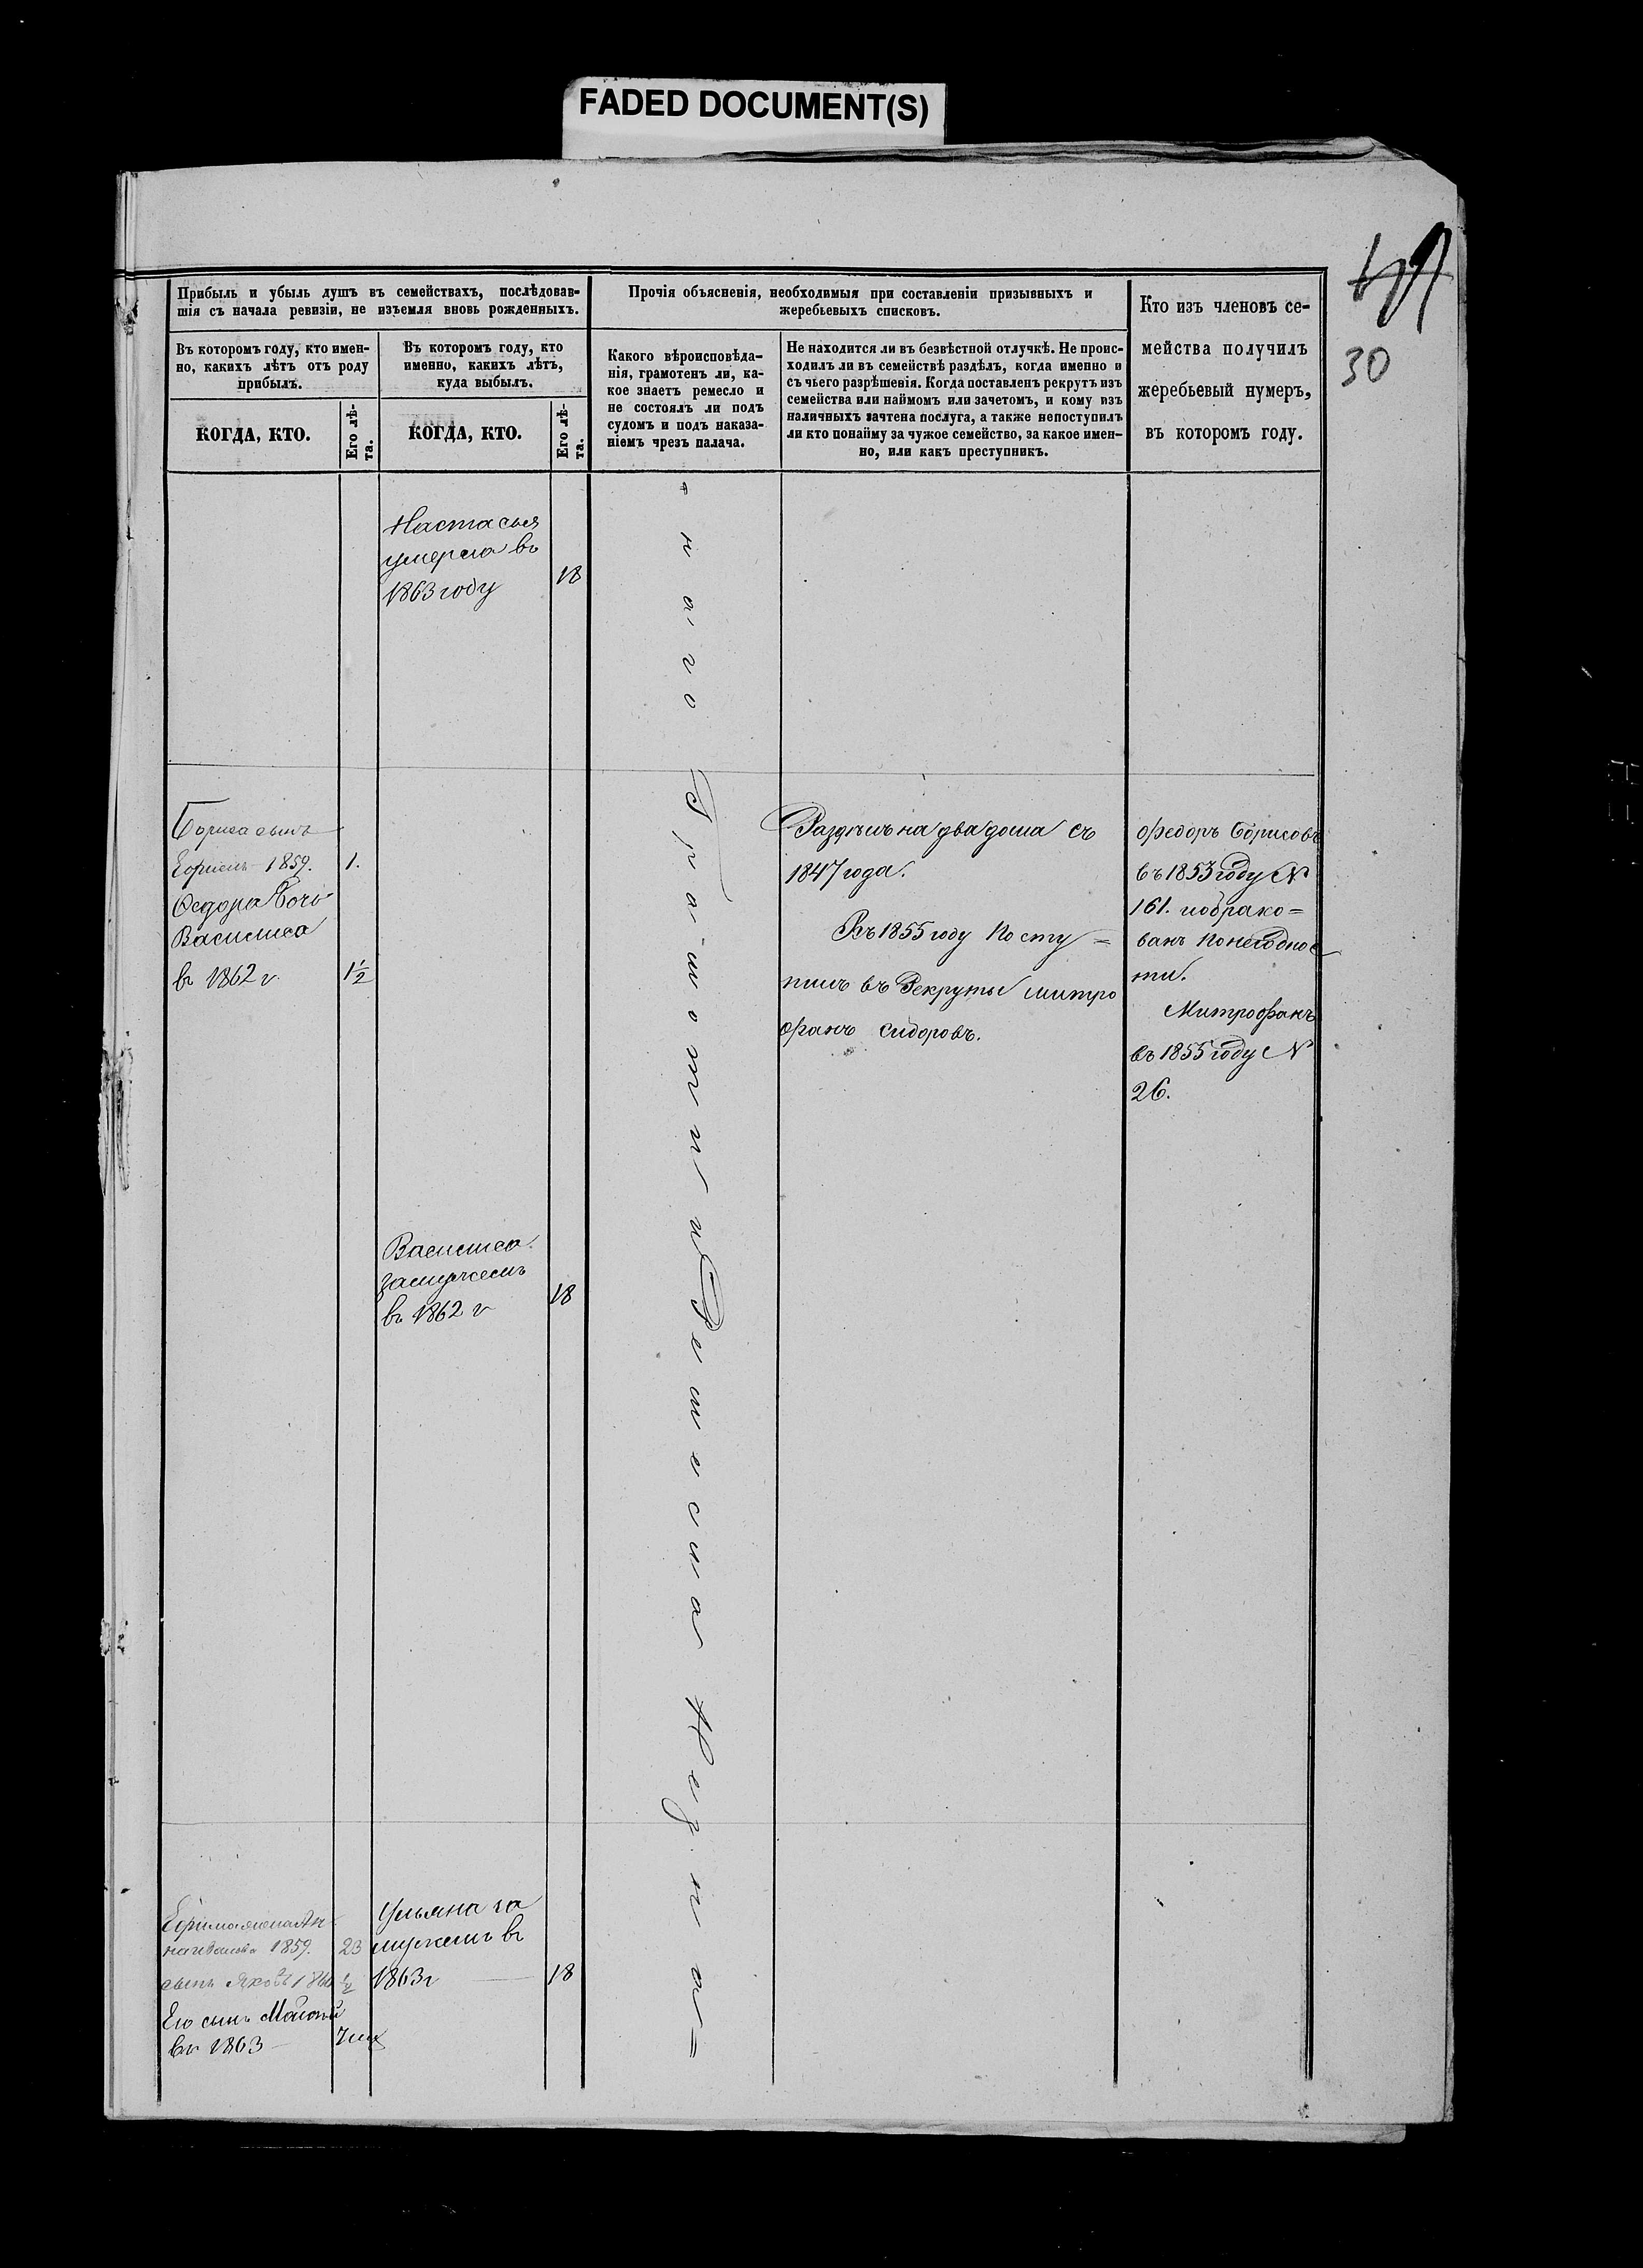 FADED DOCUMENT(S)
30
Прибыль и убыль душъ въ семействахъ, послѣдовав-
шія съ начала ревизіи, не изъемля вновь рожденныхъ.
Въ которомъ году, кто имен-
но, какихъ лѣтъ отъ роду
прибылъ.
КОГДА, КТО.
Его лѣ-
та.
Въ которомъ году, кто
именно, какихъ лѣтъ,
куда выбылъ.
КОГДА, КТО.
Его лѣ-
та.
Прочія объясненія, необходимыя при составленіи призывныхъ и
жеребьевыхъ списковъ.
Какого вѣроисповѣда-
нія, грамотенъ ли, ка-
кое знаетъ ремесло и
не состоялъ ли подъ
судомъ и подъ наказа-
ніемъ чрезъ палача.
Не находится ли въ безвѣстной отлучкѣ. Не проис-
ходилъ ли въ семействѣ раздѣлъ, когда именно и
съ чьего разрѣшенія. Когда поставленъ рекрутъ изъ
семейства или наймомъ или зачетомъ, и кому изъ
наличныхъ зачтена послуга, а также непоступилъ
ли кто понайму за чужое семейство, за какое имен-
но, или какъ преступникъ.
Кто изъ членовъ се-
мейства получилъ
жеребьевый нумеръ,
въ которомъ году.
Настасья
умерла въ
1863 году
18
наго Грамотныхъ и Ремесла
Бориса сынъ
1859.
1.
Федора дочь
Василиса
въ 1862 г
1½
Раздѣлъ на два дома съ
1847 года.
Въ 1855 году Посту=
пилъ въ Рекруты Митро
фанъ Сидоровъ.
Федоръ Борисовъ
въ 1853 году №
161. и обрако=
ванъ по негоднос
ти.
Митрофанъ
въ 1855 году №
26.
Василиса
замужемъ
въ 1862 г
18
1859.
23
сынъ Яковъ
½
Его сынъ
въ 1863
Ульяна за
мужемъ въ
1863 г
18